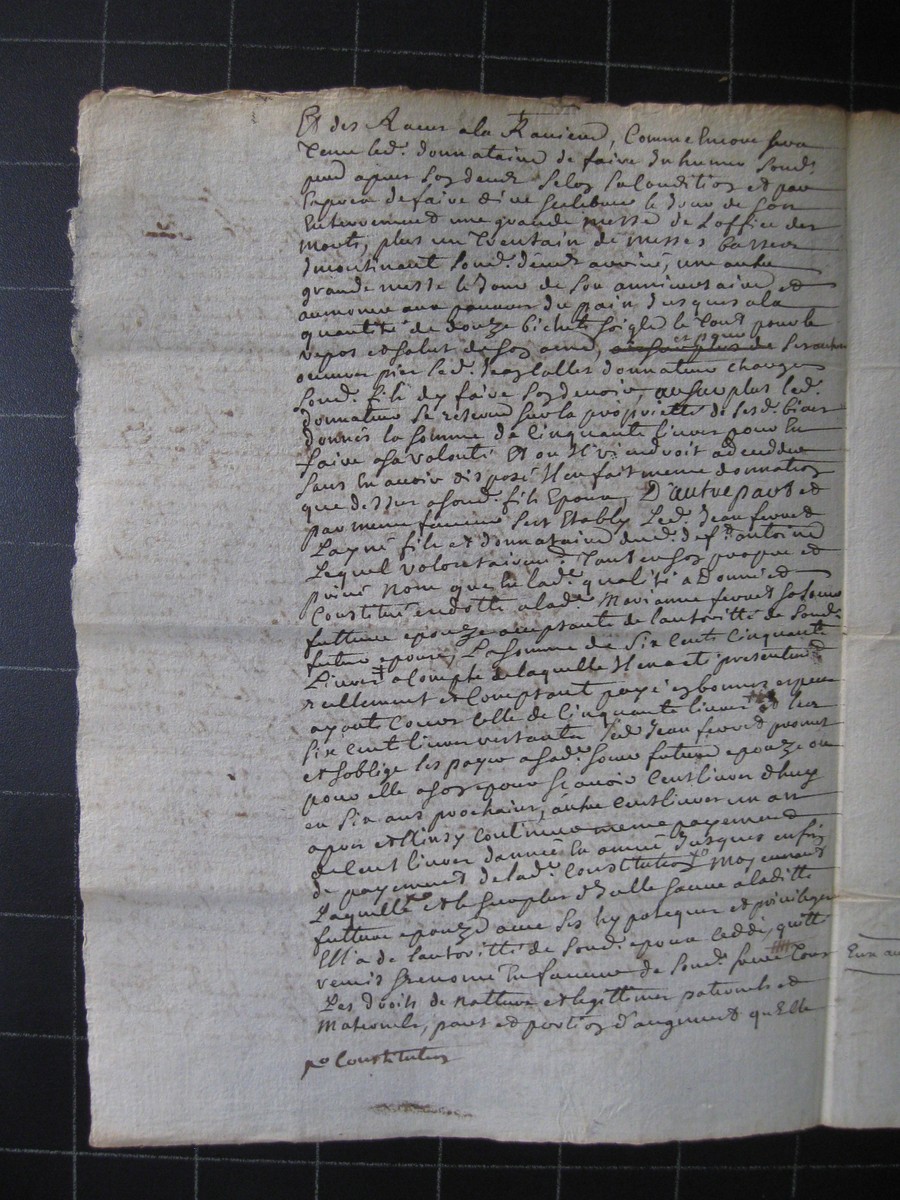 Et des Raeur a la Raniere, Comme Encore sera
Tenu led. donnataire de faire Inhumer Sond.
pere apres son deces selon sa Condition et par
de faire dire Scelebrer le Jour de son
Enterrement une grande messe de Loffice des
Morts, plus un Trentain de messes basses
Incontinant Sond. déces arrivé, une autre
grande messe le Jour de Son anniversaire et
aumoner aux pauvres du pain Jusques a la
quantité de douze bichets Soigle le Tout pour le
repos et salut de son ame,
œuvres pies led. donnateur charge
Sond. fils dy faire Son devoir, au surplus led.
donnateur Se reserve Sur la proprietté de Sesd. biens
donnés la somme de Cinquante livres pour En
faire a sa volonté Et ou Il viendroit a deceder
Sans En avoir disposé Il en fait meme donnation
que dessus a Sond. fils Epoux, D'autre part et
par meme faveur Sest Etably Led. Jean ferred
Layné fils et donnataire dud. deft. antoine
Lequel volontairemt. Tant en son propre et
privé Nom que En lad. qualité a Donné et
Constitué en dotte a lad. Marianne ferred sa Soeur
future epouze acceptante de lautoritté de Sond.
futur epoux, La Somme de Six Cents Cinquante
Livres a Compte de laquelle Il en a eté presentemt.
reellement et Comptant payé en bonnes especes
ayants Cours Celle de Cinquante livres et les
Six Cent livres restantes led. Jean ferred promet
et soblige les payer a sad. Soeur future epouze ou
pour elle a son epoux Scavoir Cent livres dhuy
en Six ans prochains, autre Cent livres un an
apres et Ainsy Continuer meme payement
de Cent livres dannée En année Jusques enfin
de payement de lad. Constitution Moyennant
Laquelle et le Surplus Elle Sauve a laditte
future epouze avec Ses hypoteques et privileges
Ell'a de lautoritté de Sond. epoux Ceddé, quitté
remis Et renoncé En faveur de Sond. frere Tous
Les droits de nature et legittimes paternels et
Maternels, part et portion d'augment qu'Elle
Constitution
Eux au